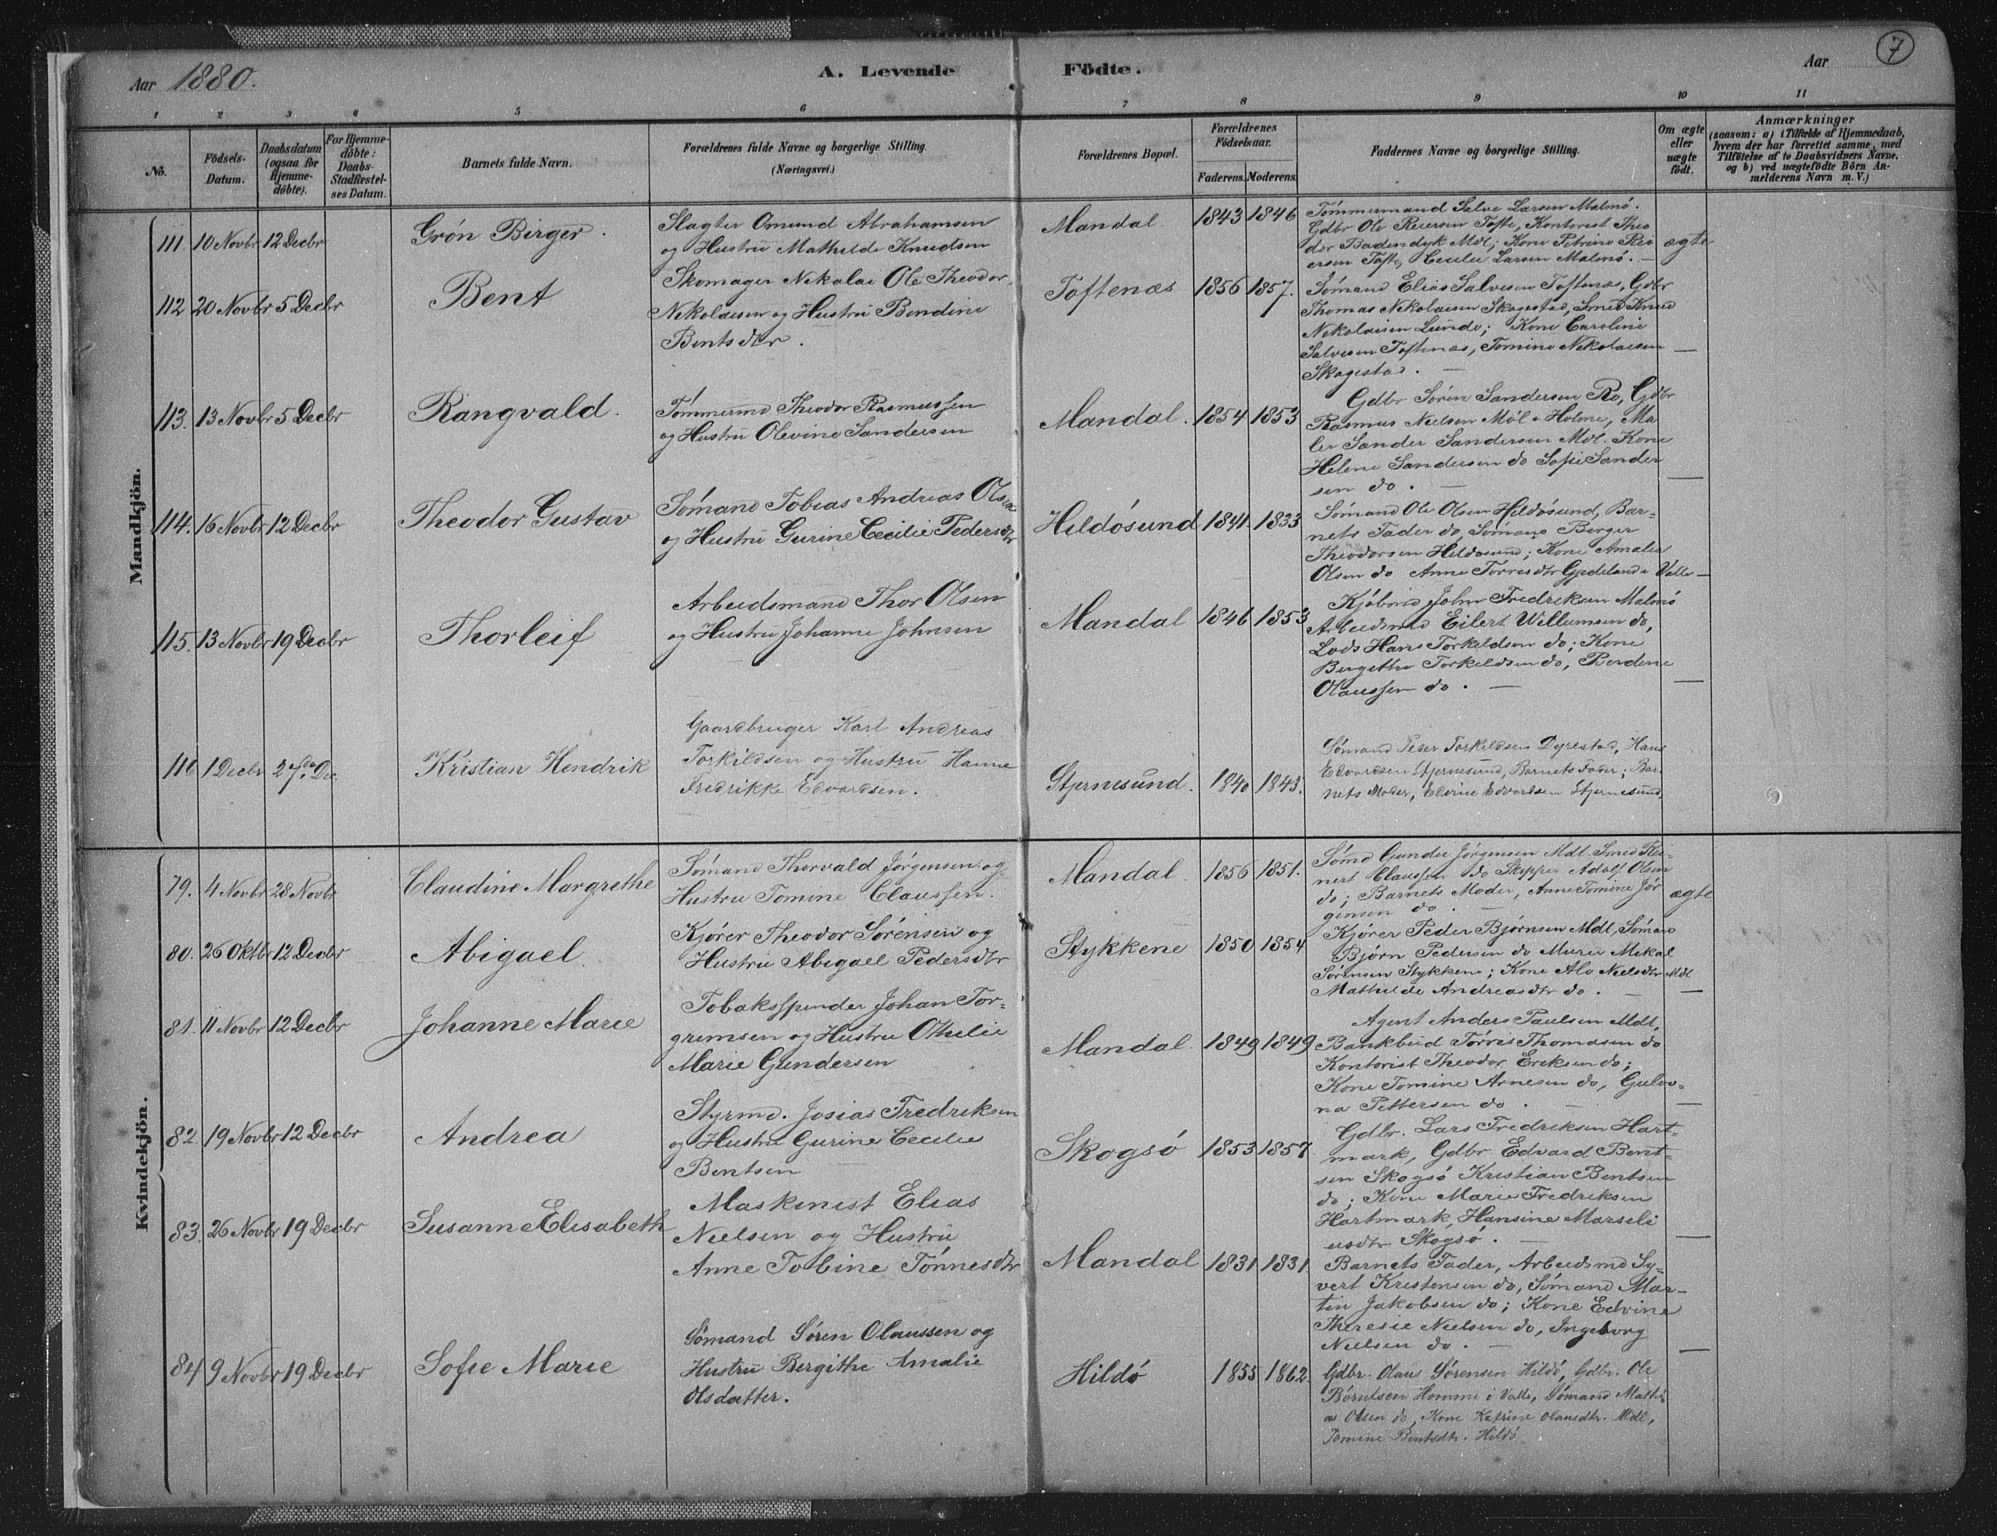 7
Aar 1880.
A. Levende Födte.
Aar
1 2 3 4 5 6 7 8 9 10 11
No.
Födsels-
Datum.
Daabsdatum
(ogsaa for
Hjemme-
döbte).
For Hjemme-
döbte:
Daabs-
Stadfæstel-
ses Datum.
Barnets fulde Navn.
Forældrenes fulde Navne og borgerlige Stilling.
(Næringsvei.)
Forældrenes Bopæl.
Forældrenes
Födselsaar.
Faderens. Moderens.
Faddernes Navne og borgerlige Stilling.
Om ægte
eller
uægte
født.
Anmærkninger
(saasom: a) i Tilfælde af Hjemmedaab,
hvem der har forrettet samme, med
Tilföielse af to Daabsvidners Navne.
og b) ved uægtefödte Börn An-
melderens Navn m. V.)
Mandkjön.
111. 10 Novbr 12 Decbr
Grón Birger.
Slagter Omund Abrahamsen
og Hustru Mathilde Knudsen
Mandal. 1843 1846
Tómmermand Salve Larsen Malmó.
Gdbr Ole Reiersen Tofte, Kontorist Theo
dor Badendyk Mdl; Kone Petrine Rei
ersen Tofte, Cecilie Larsen Malmó. —
ægte
112 20 Novbr 5 Decbr
Bent
Skomager Nikolai Ole Theodor
Nikolaisen og Hustru Bendine
Bentsdtr.
Toftenæs 1856 1857.
Sómand Elias Salvesen Toftenæs, Gdbr
Thomas Nikolaisen Skagestad, Smed Knud
Nikolaisen Lunde; Kone Caroline
Salvesen Toftenæs, Tomine Nikolaisen
Skagestad. —
—
113. 13 Novbr 5 Decbr
Rangvald.
Tómmermd Theodor Rasmussen
og Hustru Olevine Sandersen
Mandal. 1854 1853
Gdbr Sóren Sandersen Ro, Gdbr
Rasmus Nielsen Mól i Holme, Ma
ler Sander Sandersen Mdl. Kone
Helene Sandersen do Sofie Sander
sen do. —
—
114. 16 Novbr 12 Decbr
Theodor Gustav
Sómand Tobias Andreas Olsen
og Hustru Gurine Cecilie Pedersdtr
Hildósund 1841. 1833
Sómand Ole Olsen Hildósund, Bar-
nets Fader do, Sómand Berger
Theodorsen Hildosund; Kone Amalia
Olsen do Anne Tórresdtr Gjedeland i Valle —
115. 13 Novbr 19 Decbr
Thorleif
Arbeidsmand Thor Olsen
og Hustru Johanne Johnsen
Mandal 1846 1853
Kjóbmd John Fredriksen Malmó
Arbeidsmd Eilert Willumsen do,
Lods Hans Torkildsen do; Kone
Bergitha Torkildsen do, Berdine
Olaussen do. —
—
116 1 Decbr
Kristian Hendrik
Gaardbruger Karl Andreas
Torkildsen og Hustru Hanne
Fredrikke Edvardsen.
Stjernesund. 1840 1843.
Sómand Peder Torkildsen Dyrestad, Hans
Edvardsen Stjernesund, Barnets Fader; Bar-
nets Moder, Elvine Edvardsen Stjernesund.
Kvindekjön.
79. 4 Novbr 28 Novbr
Claudine Margrethe
Sómand Thorvald Jórgensen og
Hustru Tomine Claussen.
Mandal. 1856 1851.
Sómd Gunder Jórgensen Mdl. Smed Rei-
nert Claussen do Skipper Adolf Olsen
do; Barnets Moder, Anne Tomine Jór
gensen do —
ægte
80. 26 Oktbr 12 Decbr
Abigael.
Kjórer Theodor Sórensen og
Hustru Abigael Pedersdtr
Stykkene 1850 1854
Kjórer Peder Bjórnsen Mdl, Sómand
Bjórn Pedersen do Murer Mikal
Sórensen Stykkene; Kone Alo Nielsdtr Mdl
Mathilde Andreasdtr do. —
—
81. 11 Novbr 12 Decbr
Johanne Marie
Tobaksspinder Johan Tor-
grimsen og Hustru Othilie
Marie Gundersen
Mandal. 1849 1849
Agent Anders Paulsen Mdl,
Bankbud Tórris Thomasen do
Kontorist Theodor Eriksen do;
Kone Tomine Arnesen do, Gulov-
na Pettersen do. —
—
82. 19 Novbr 12 Decbr
Andrea
Styrmd. Josias Fredriksen
og Hustru Gurine Cecilie
Bentsen
Skogsó 1853 1857
Gdbr. Lars Fredriksen Hart-
mark, Gdbr Edvard Bent-
sen Skogsó Kristian Bentsen
do; Kone Marie Fredriksen
Hartmark, Hansine Marseli
usdtr Skogsó. —
—
83. 26 Novbr 19 Decbr
Susanne Elisabeth
Maskinist Elias
Nielsen og Hustru
Anne Tobine Tónnesdtr
Mandal 1831 1831
Barnets Fader, Arbeidsmd Sy-
vert Kristensen do, Sómand Mar-
tin Jakobsen do; Kone Edvine
Theresie Nielsen do, Ingeborg
Nielsen do. —
—
84 9 Novbr 19 Decbr
Sofie Marie
Sómand Sóren Olaussen og
Hustru Bergithe Amalie
Olsdatter.
Hildó 1855 1862.
Gdbr. Olaus Sórensen Hildó, Gdbr. Ole
Bórulsen Homme i Valle, Sómand Mathi
as Olsen do, Kone Katrine Olausdtr. Mdl,
Tomine Bentsdtr. Hildó